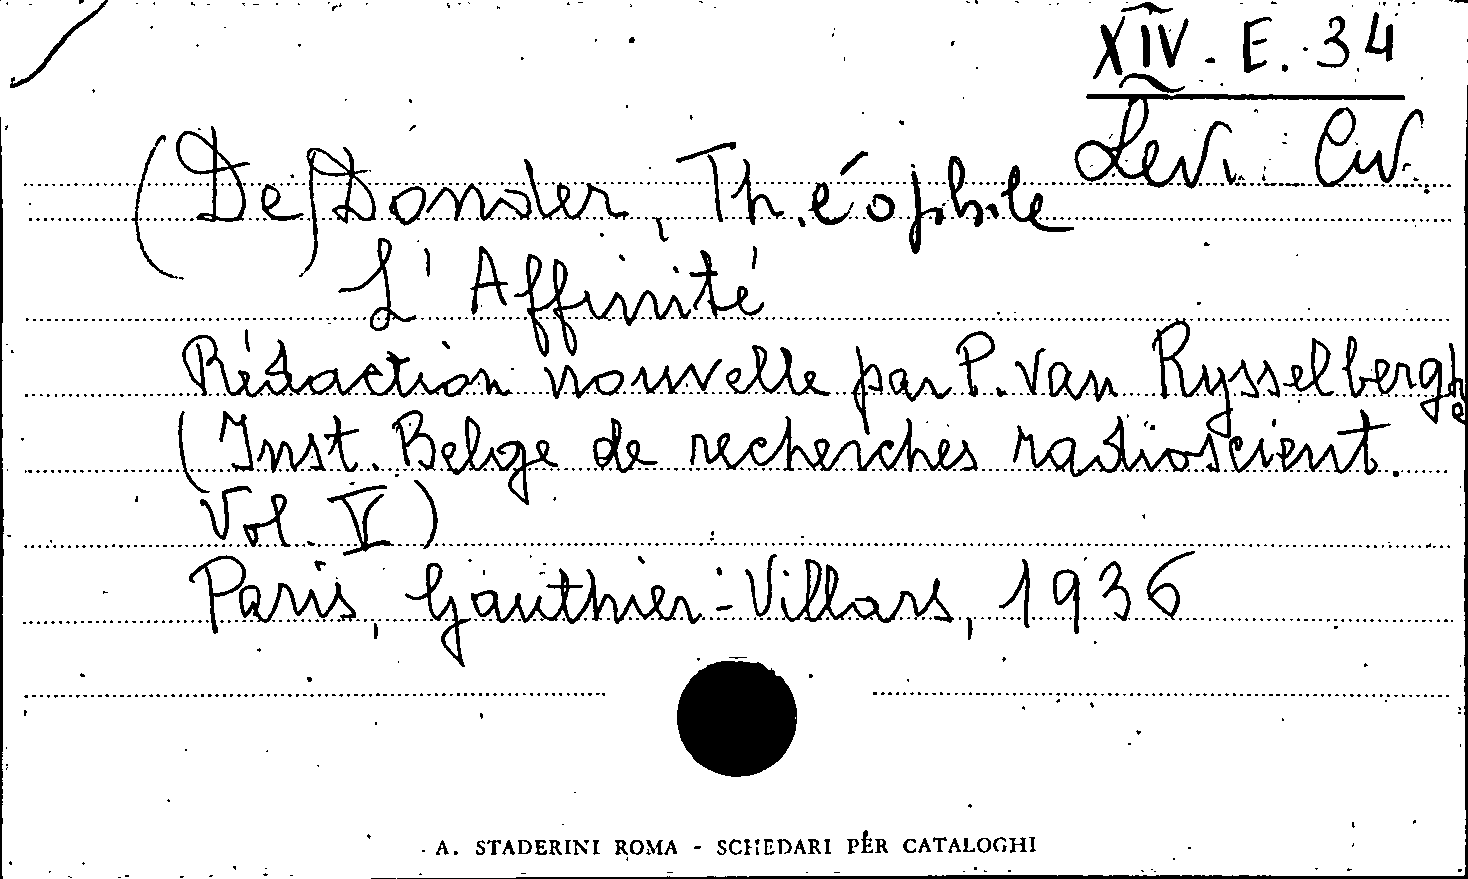 XIV. E. 34
Levi Civ.
(De) Donder, Théophile
L'Affinité
Rédaction nouvelle par P. Van Rysselberghe
(Inst. Belge de recherches radioscient.
Vol. V)
Paris, Gauthier-Villars, 1936
A. STADERINI ROMA - SCHEDARI PER CATALOGHI